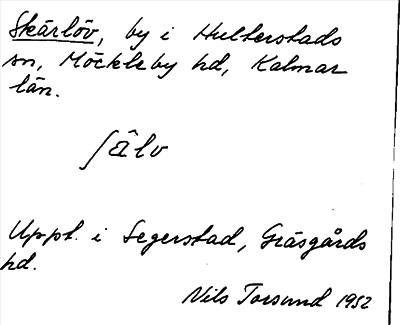 Skärlöv, by i Hulterstads
sn, Möckleby hd, Kalmar
län.
ʃälv
Uppt. i Segerstad, Gräsgårds
hd.
Nils Torsund 1952